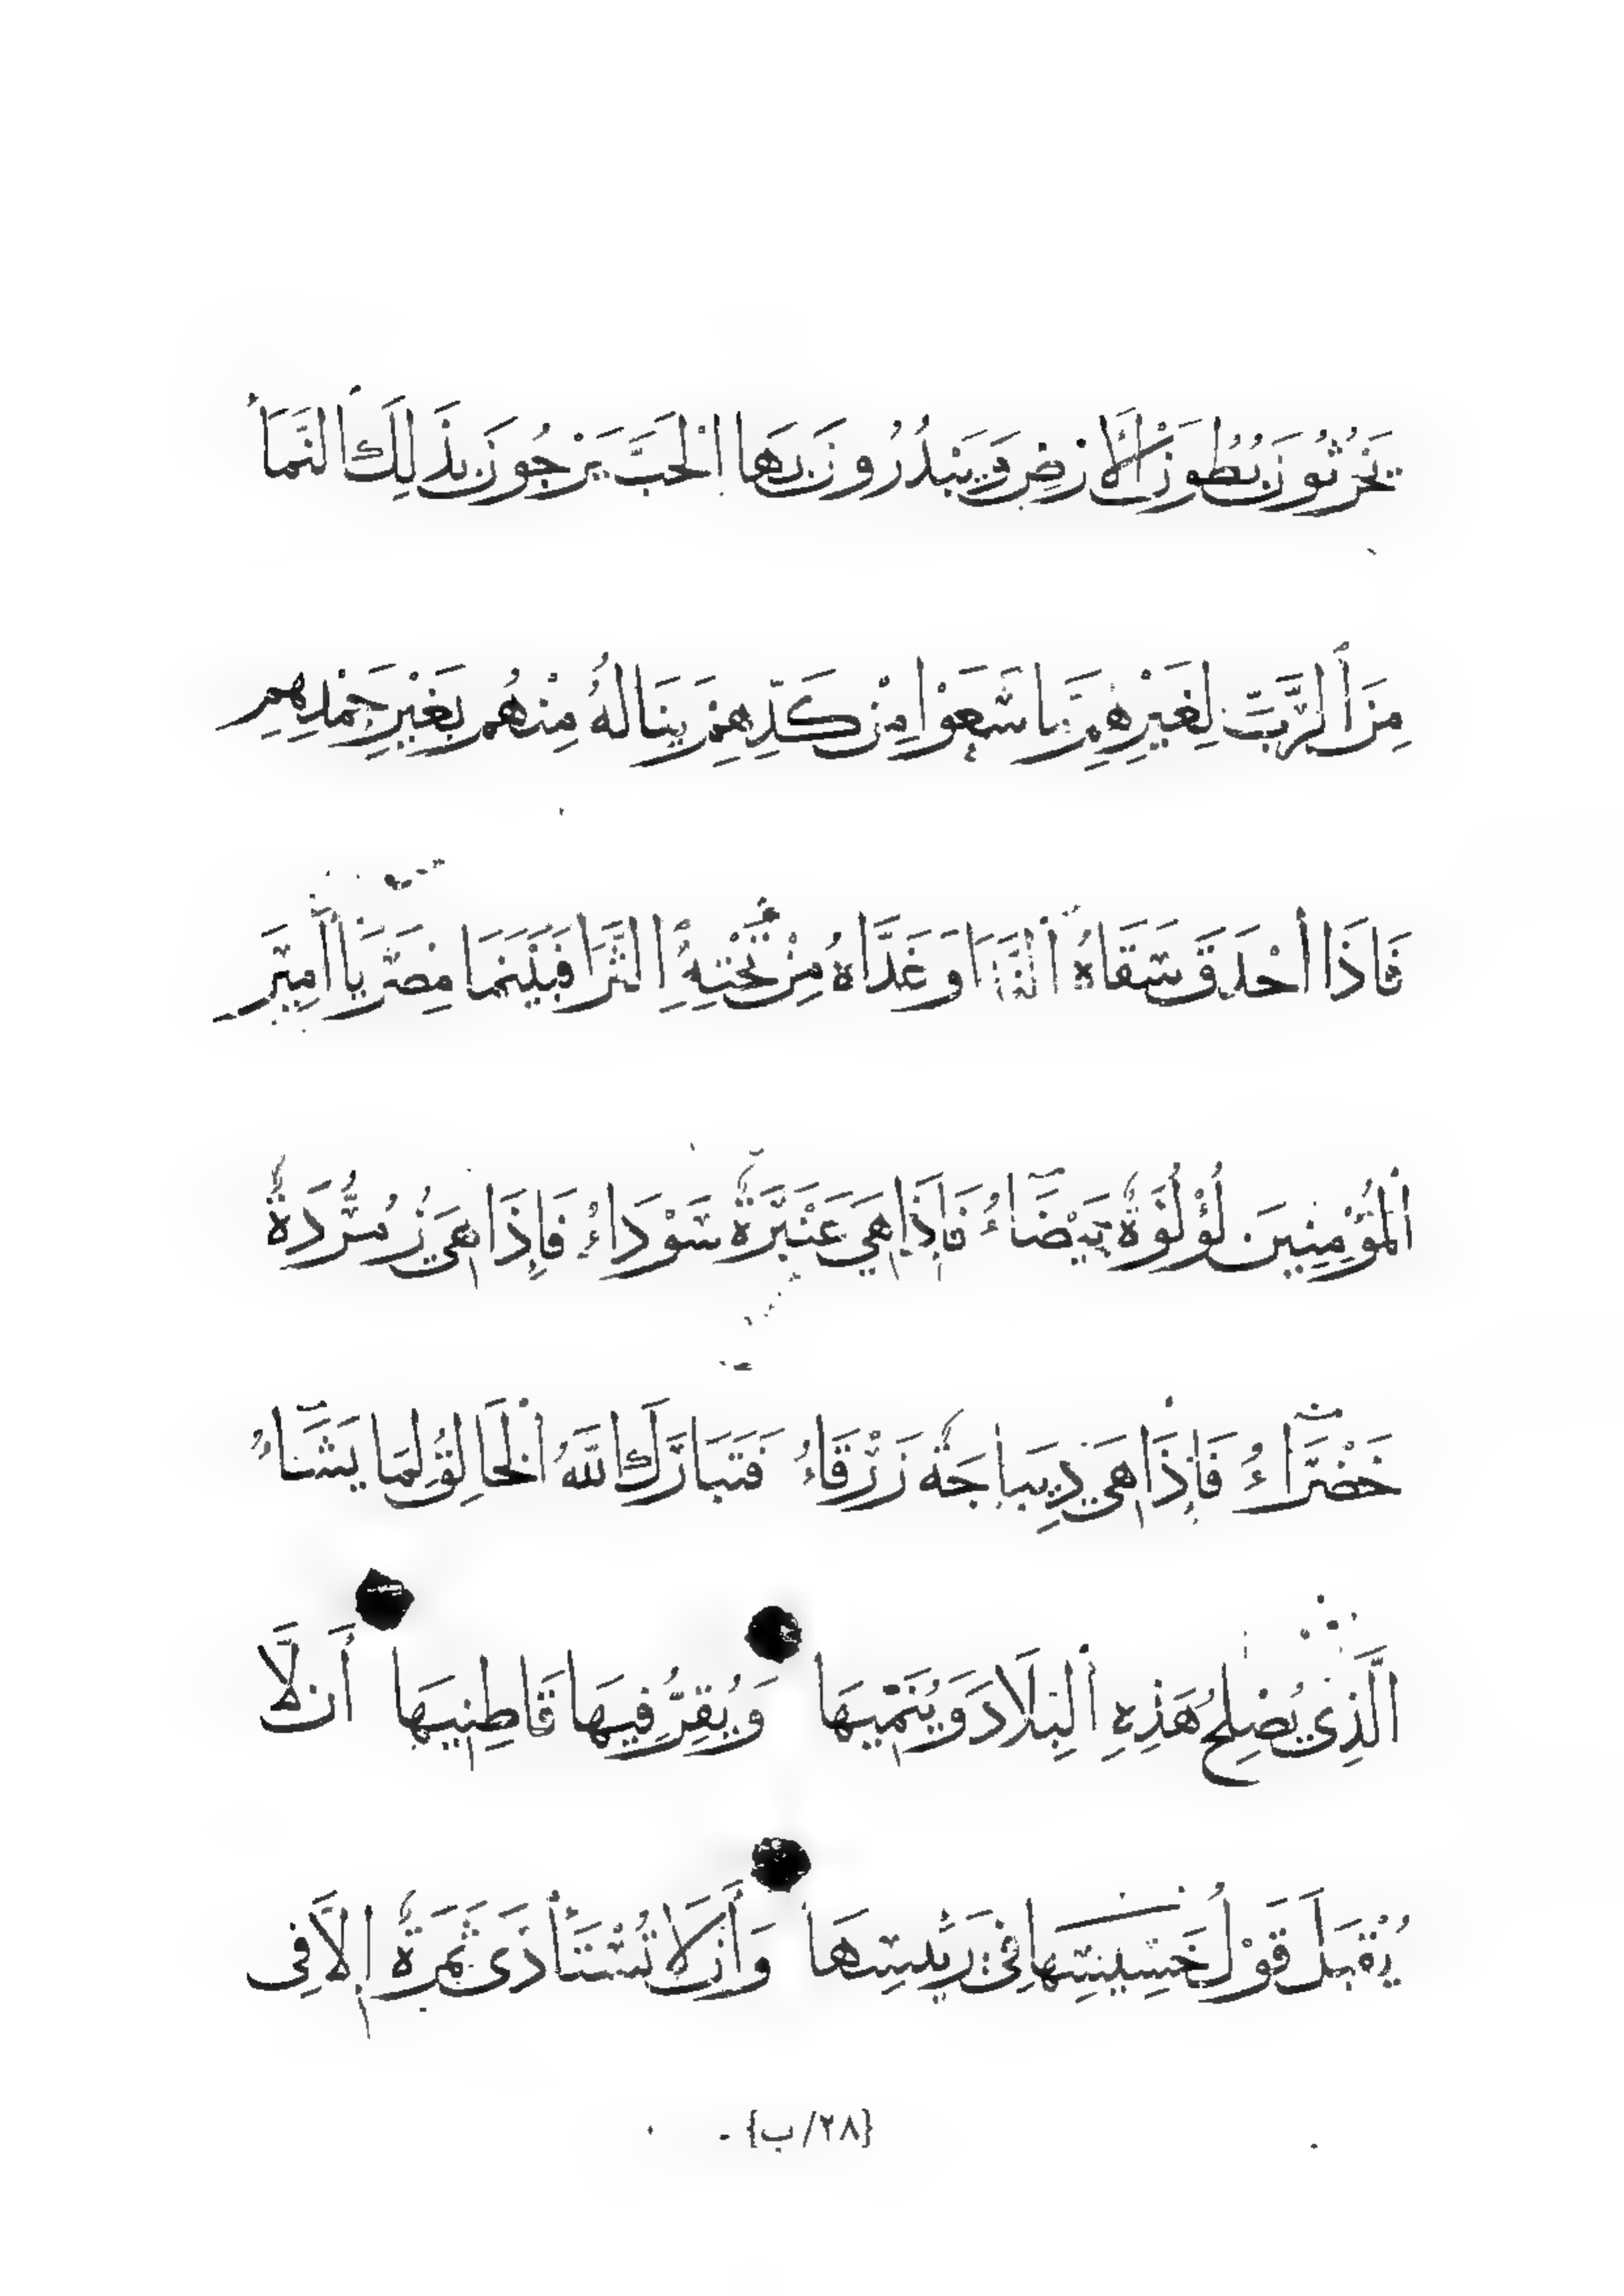 يَحْرُثُونَ بُطُونَ الْأَرْضِ وَيَبْذُرُونَ بِهَا الْحَبَّ يَرْجُونَ بِذَلِكَ النَّمَاءَ
مِنَ الرَّبِّ لِغَيْرِهِمْ مَا سَعَوْا مِنْ كَدِّهِمْ يَنَالُهُ مِنْهُمْ بِغَيْرِ جَهْدِهِمْ
فَإِذَا أَحْدَقَ سَقَاهُ وَغَذَّاهُ مِنْ تَحْتِهِ الثَّرَا فَبَيْنَمَا مِصْرَ يَا أَمِيرَ
الْمُؤْمِنِينَ لُؤْلُؤَةٌ بَيْضَاءُ فَإِذَا هِيَ عَنْبَرَةٌ سَوْدَاءُ فَإِذَا هِيَ زُمُرُّدَةٌ
خَضْرَاءُ فَإِذَا هِيَ دِيبَاجَةٌ زَرْقَاءُ فَتَبَارَكَ اللَّهُ الْخَالِقُ لِمَا يَشَاءُ
الَّذِي يُصْلِحُ هَذِهِ الْبِلَادَ وَيُنَمِّيهَا وَيُقِرُّ فِيهَا قَاطِنِيهَا أَن لَّا
يُقْبَلَ قَوْلُ خَسِيسِهَا فِي رَئِيسِهَا وَأَن لَا تُسْتَأْذَى ثَمَرَةٌ إِلَّا فِي
{٢٨/ب}